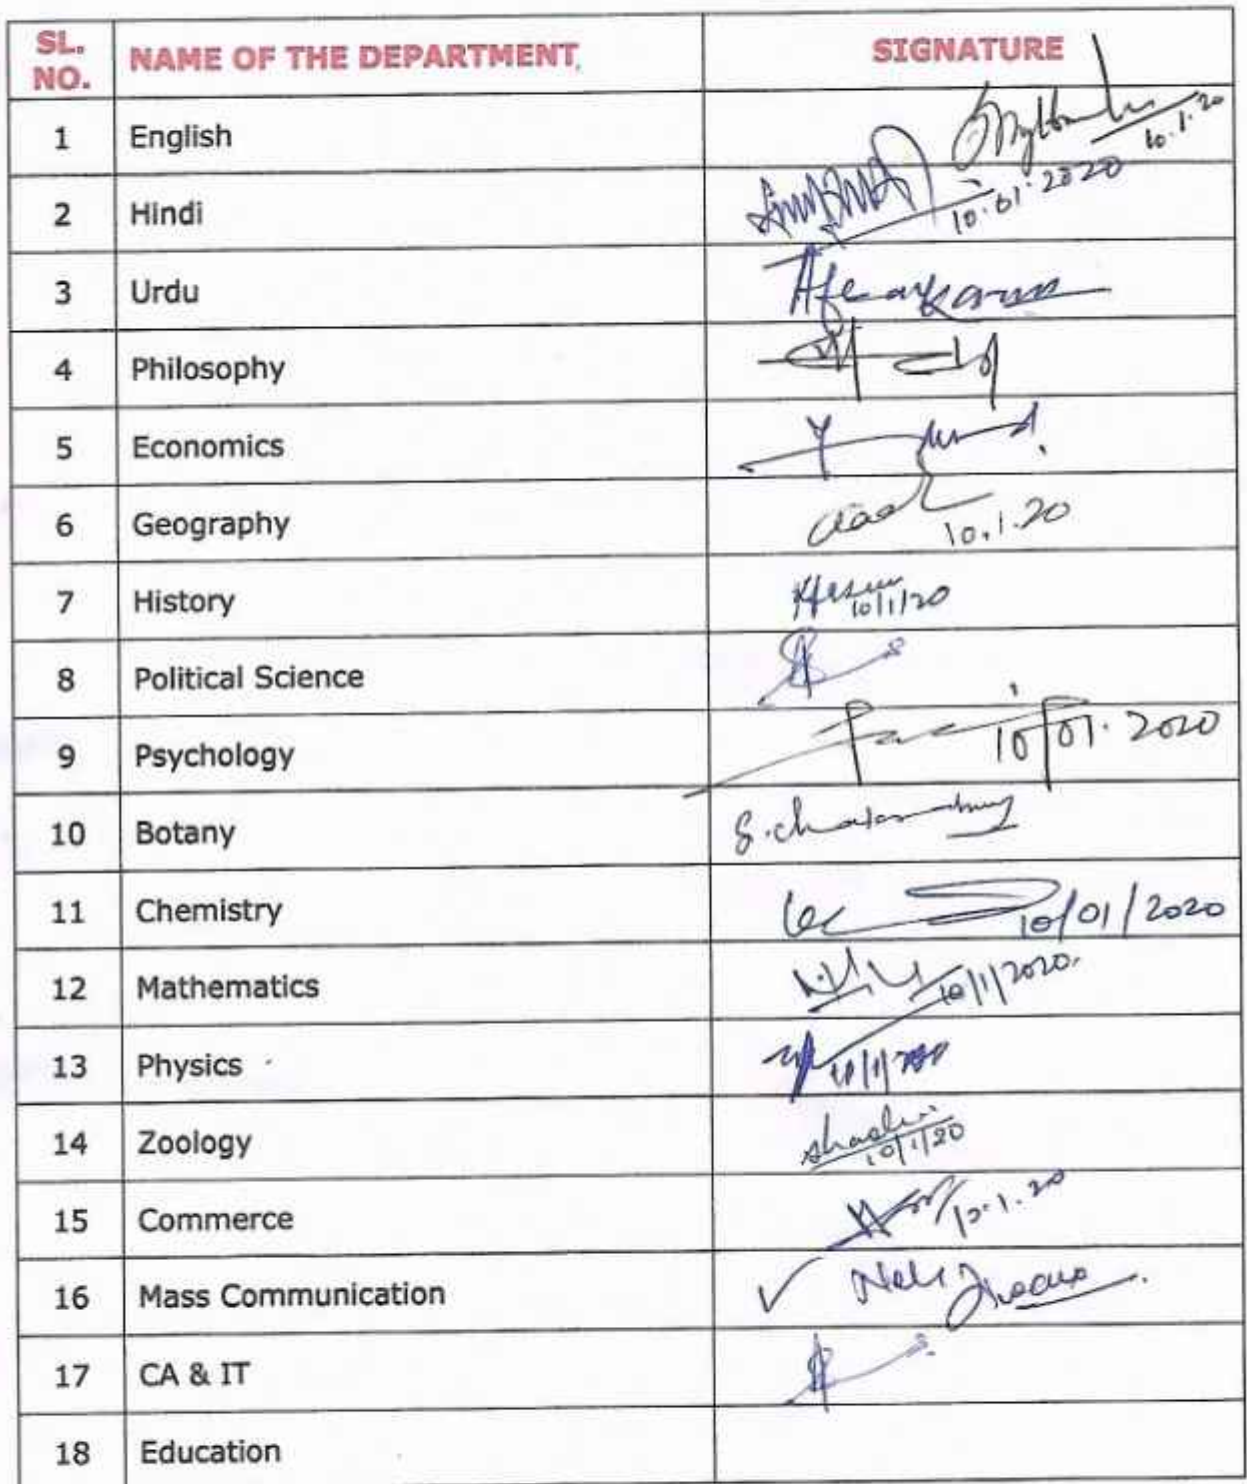 SL. NO. NAME OF THE DEPARTMENT SIGNATURE
1 English 10.1.20
2 Hindi 10.01.2020
3 Urdu
4 Philosophy
5 Economics
6 Geography 10.1.20
7 History 10/1/20
8 Political Science
9 Psychology 10/01.2020
10 Botany
11 Chemistry 10/01/2020
12 Mathematics 10/1/2020.
13 Physics
14 Zoology 10/1/20
15 Commerce 10.1.20
16 Mass Communication
17 CA & IT
18 Education